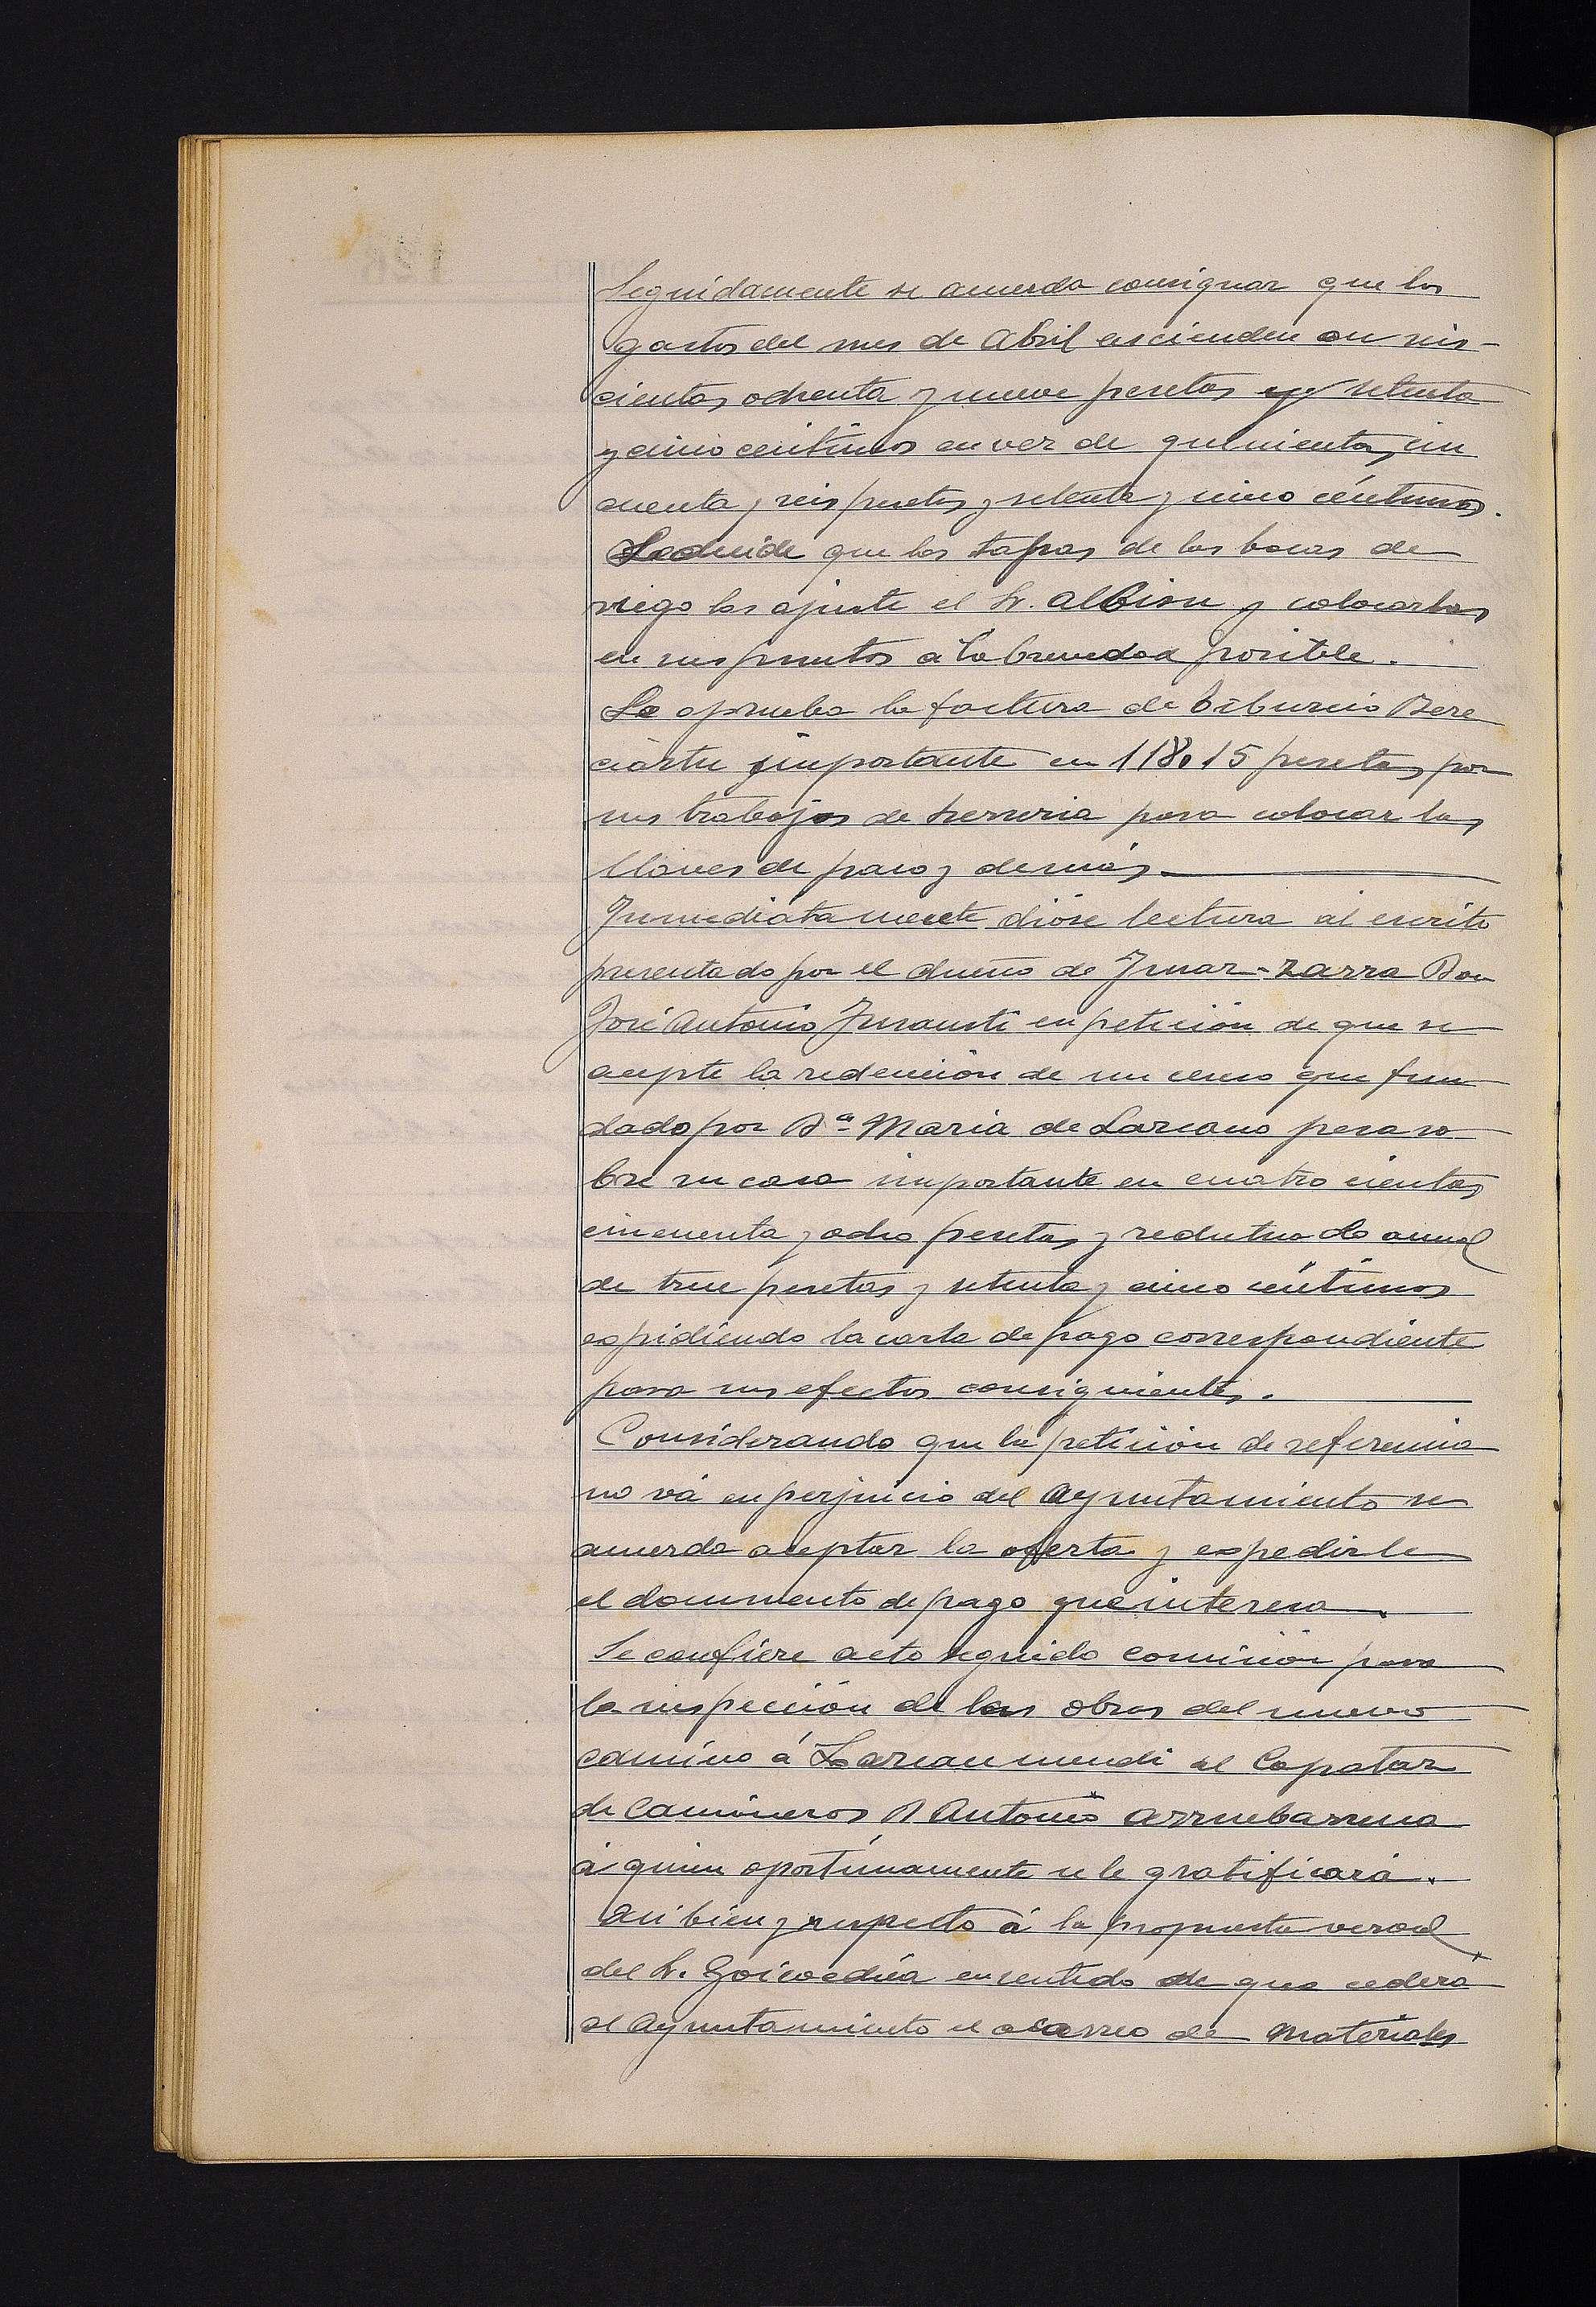 Seguidamente se acuerda consignar que los
gastos del mes de Abril ascienden en seis-
cientas ochenta y nueve pesetas y setenta
y cinco céntimos en vez de quinientas cin
cuenta y seis pesetas y setenta y cinco céntimos.
Se decide que las tapas de las bocas de
riego las ajuste el Sr. Albisu y colocarlas
en sus puntos a la brevedad posible.
Se aprueba la factura de Tiburcio Bere
ciartu importante en 118,15 pesetas por
sus trabajos de herreria para colocar las
llaves de paso y demás.
Inmediatamente dióse lectura al escrito
presentado por el dueño de Ynuar-zarra Don
José Antonio Insausti en petición de que se
acepte la redención de un censo que fun
dado por Dª Maria de Lazcano pesa so
bre su casa importante en cuatro cientas
cincuenta y ocho pesetas y redituado anual
de trece pesetas y setenta y cinco céntimos
espidiendo la carta de pago correspondiente
para sus efectos consiguientes.
Considerando que la petición de referencia
no vá en perjuicio del Ayuntamiento se
acuerda aceptar la oferta y espedirle
el documento de pago que interesa.
Se confiere acto seguido comisión para
la inspección de las obras del nuevo
camino á Lazcaumendi al Capataz
de Camineros D Antonio Arruebarrena
á quien oportúnamente se le gratificará.
Asi bien y respecto á la propuesta verbal
del Sr. Goicoechea en sentido de que cederá
al Ayuntamiento el acarreo de materiales